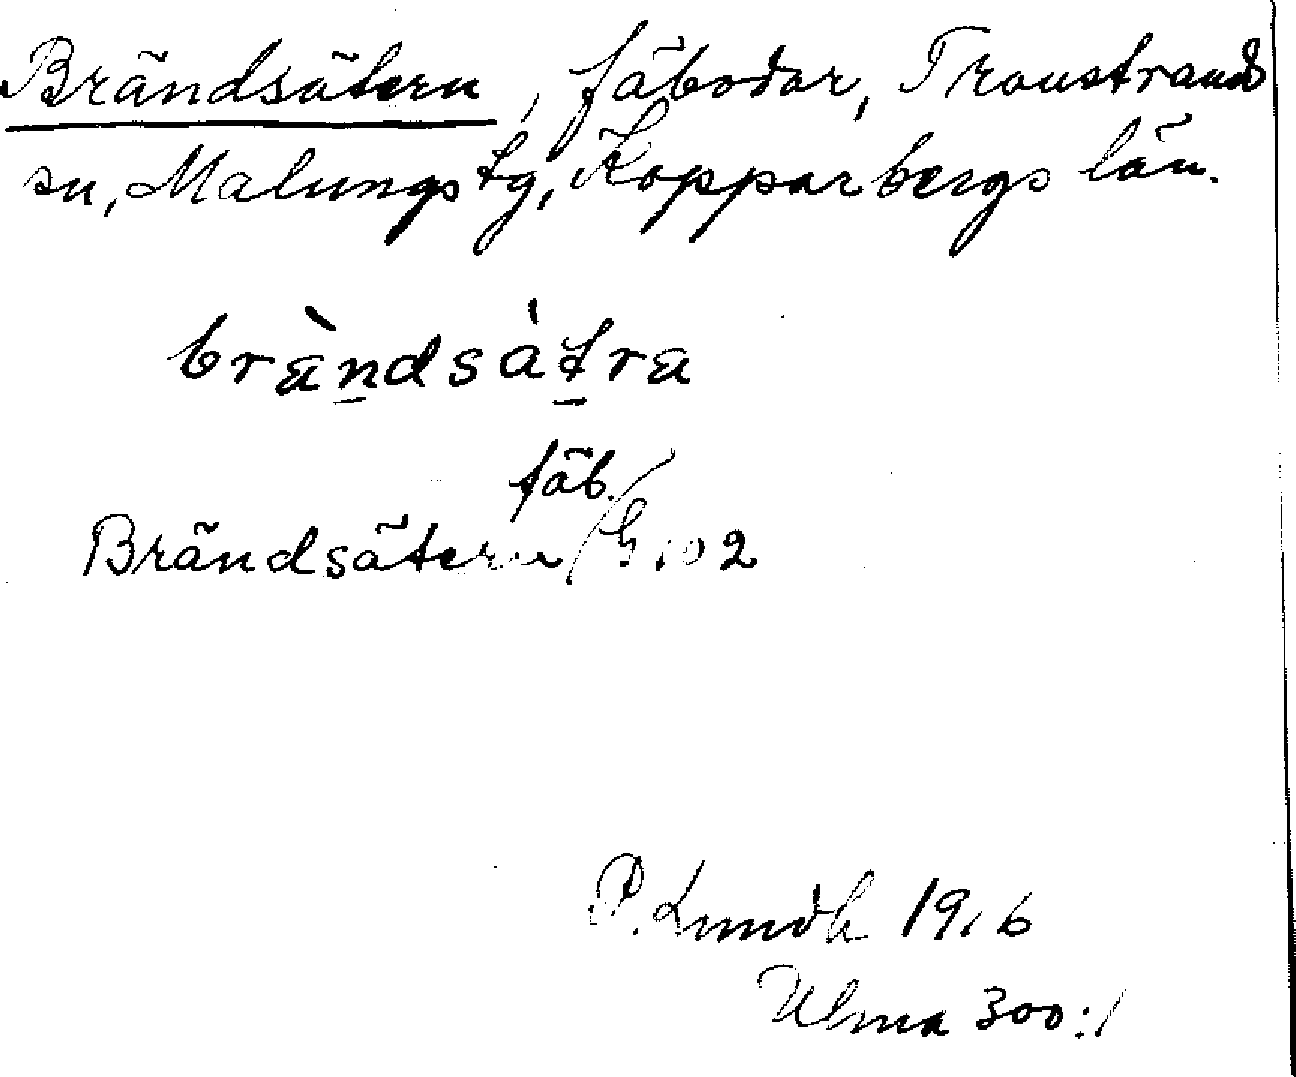 Brändsätern, fäbodar, Transtrands
sn, Malungs tg, Kopparbergs län.
bràndsàtra
fäb.
Brändsätern / G 102
P. Lundh 1916
Ulma 300:1